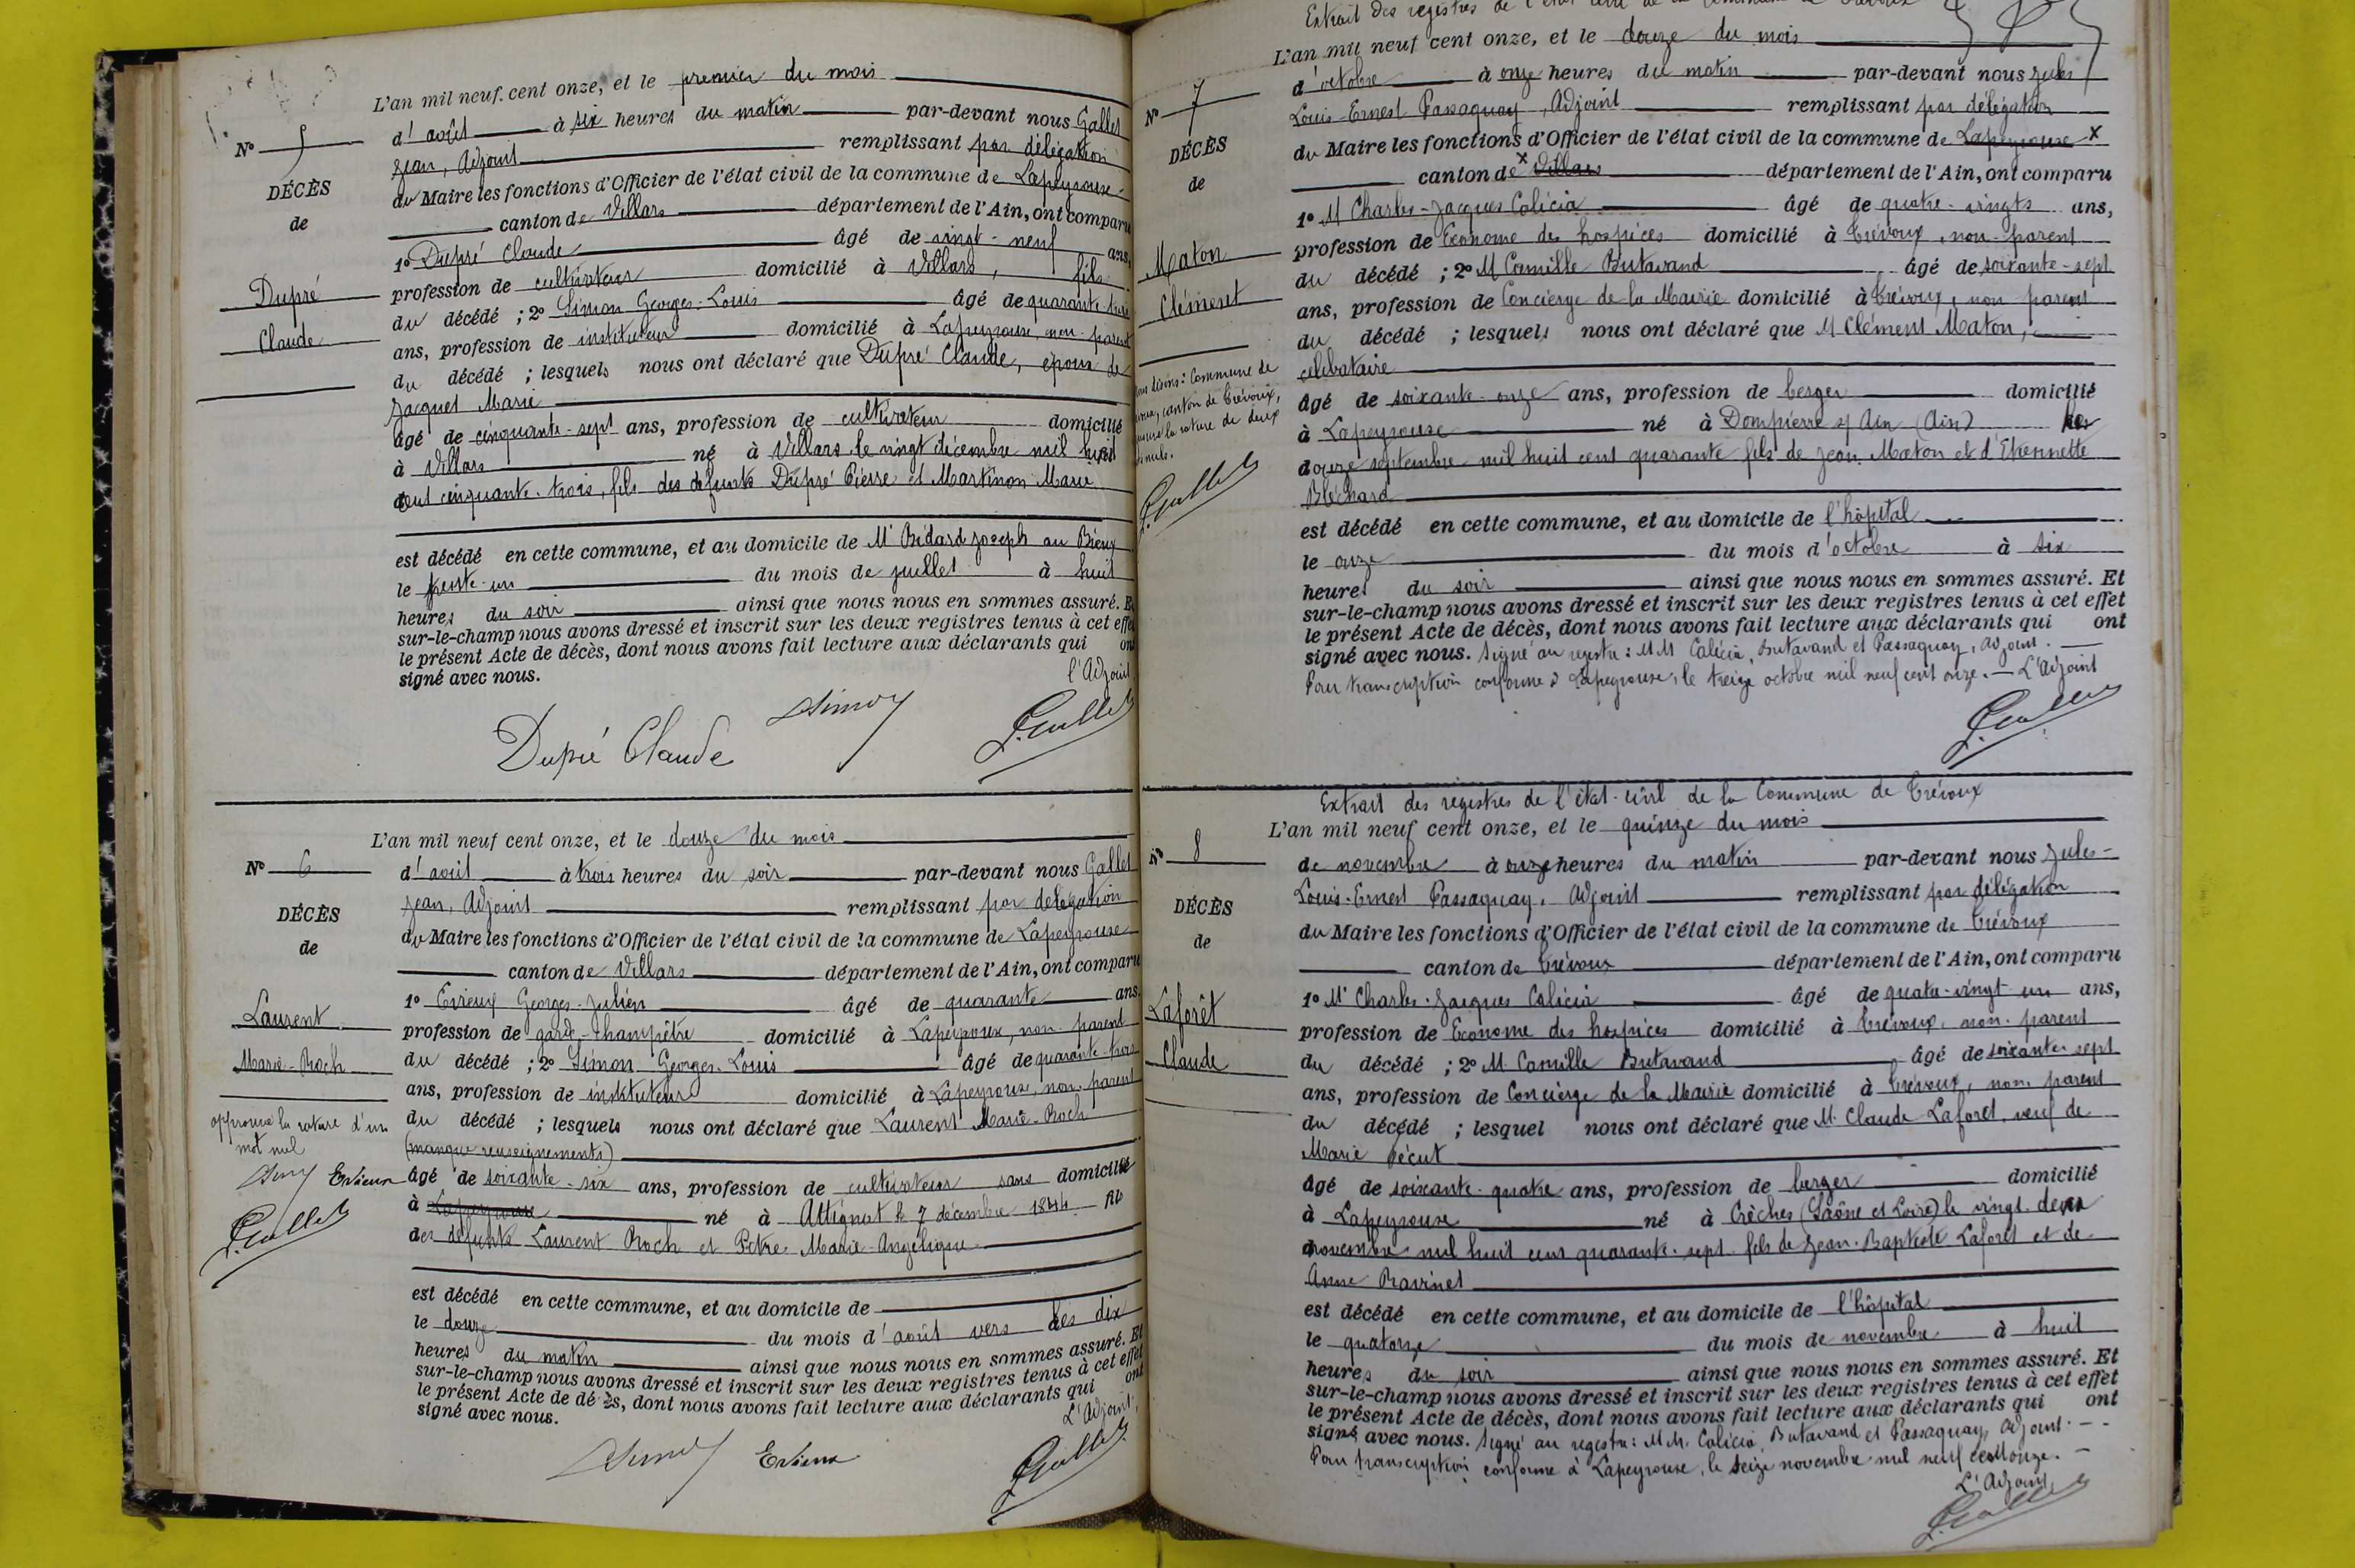 L'an mil neuf cent onze, et le premier du mois
d'août à six heures du matin par-devant nous Gallet
Jean, Adjoint remplissant par délégation
du Maire les fonctions d'Officier de l'état civil de la commune de Lapeyrouse
canton de Villars département de l'Ain, ont comparu
1º Dupré Claude âgé de vingt-neuf ans,
profession de cultivateur domicilié à Villars, fils
du décédé ; 2º Simon Georges-Louis âgé de quarante-trois
ans, profession de instituteur domicilié à Lapeyrouse, non parent
du décédé ; lesquels nous ont déclaré que Dupré Claude, époux de
Jacquet Marie
âgé de cinquante-sept ans, profession de cultivateur domicilié
à Villars né à Villars le vingt décembre mil huit
cent cinquante-trois, fils des défunts Dupré Pierre et Martinon Marie
est décédé en cette commune, et au domicile de Mr Bédard Joseph au Bieux
le trente-un du mois de juillet à huit
heures du soir ainsi que nous nous en sommes assuré. Et
sur-le-champ nous avons dressé et inscrit sur les deux registres tenus à cet effet
le présent Acte de décès, dont nous avons fait lecture aux déclarants qui ont
signé avec nous.
l'Adjoint
Nº 5
DÉCÈS
de
Dupré
Claude
Dupré Claude
Simon
J. Gallet
L'an mil neuf cent onze, et le douze du mois
d'août à trois heures du soir par-devant nous Gallet
Jean, Adjoint remplissant par délégation
du Maire les fonctions d'Officier de l'état civil de la commune de Lapeyrouse
canton de Villars département de l'Ain, ont comparu
1º Evieux Georges-Julien âgé de quarante ans.
profession de garde-champêtre domicilié à Lapeyrouse, non parent
du décédé ; 2º Simon Georges-Louis âgé de quarante-trois
ans, profession de instituteur domicilié à Lapeyrouse, non parent
du décédé ; lesquels nous ont déclaré que Laurent Marie-Roch
(manque renseignements)
âgé de soixante-six ans, profession de cultivateur sans domicile
à Lapeyrouse né à Attignat le 7 décembre 1844 fils
des défunts Laurent Roch et Pctre Marie-Angélique
est décédé en cette commune, et au domicile de
le douze du mois d'août vers les dix
heures du matin ainsi que nous nous en sommes assuré. Et
sur-le-champ nous avons dressé et inscrit sur les deux registres tenus à cet effet
le présent Acte de décès, dont nous avons fait lecture aux déclarants qui ont
signé avec nous.
L'Adjoint,
Nº 6
DÉCÈS
de
Laurent
Marie-Roch
approuvé la rature d'un
mot nul
Simon Evieux
J. Gallet
Simon Evieux
J. Gallet
L'an mil neuf cent onze, et le douze du mois
d'octobre à onze heures du matin par-devant nous Jules
Louis-Ernest Passaquay, Adjoint remplissant par délégation
du Maire les fonctions d'Officier de l'état civil de la commune de Lapeyrouse x
canton de x Villars département de l'Ain, ont comparu
1º M Charles-Jacques Calicia âgé de quatre-vingts ans,
profession de Econome des hospices domicilié à Trévoux, non-parent
du décédé ; 2º M Camille Butavand âgé de soixante-sept
ans, profession de Concierge de la Mairie domicilié à Trévoux, non parent
du décédé ; lesquels nous ont déclaré que M Clément Maton,
célibataire
âgé de soixante-onze ans, profession de berger domicilié
à Lapeyrouse né à Dompierre s/ Ain (Ain) le
douze septembre mil huit cent quarante fils de Jean Maton et d'Etiennette
Bléchard
est décédé en cette commune, et au domicile de l'hôpital
le onze du mois d'octobre à six
heures du soir ainsi que nous nous en sommes assuré. Et
sur-le-champ nous avons dressé et inscrit sur les deux registres tenus à cet effet
le présent Acte de décès, dont nous avons fait lecture aux déclarants qui ont
signé avec nous. Signé au registre : MM Calicia, Butavand et Passaquay, Adjoint.
Pour transcription conforme à Lapeyrouse, le treize octobre mil neuf cent onze. — L'Adjoint
J. Gallet
Nº 7
DÉCÈS
de
Maton
Clément
disons : Commune de
canton de Trévoux,
la rature de deux
nuls.
J. Gallet
Extrait des registres de l'état-civil de la Commune de Trévoux
L'an mil neuf cent onze, et le quinze du mois
de novembre à onze heures du matin par-devant nous Jules-
Louis-Ernest Passaquay, Adjoint remplissant par délégation
du Maire les fonctions d'Officier de l'état civil de la commune de Trévoux
canton de Trévoux département de l'Ain, ont comparu
1º Mr Charles-Jacques Calicia âgé de quatre-vingt un ans,
profession de Econome des hospices domicilié à Trévoux, non-parent
du décédé ; 2º M. Camille Butavand âgé de soixante-sept
ans, profession de Concierge de la Mairie domicilié à Trévoux, non parent
du décédé ; lesquel nous ont déclaré que M. Claude Laforêt, veuf de
Marie Pécut
âgé de soixante-quatre ans, profession de berger domicilié
à Lapeyrouse né à Crèches (Saône et Loire) le vingt-deux
novembre mil huit cent quarante-sept fils de Jean-Baptiste Laforêt et de
Anne Ravinet
est décédé en cette commune, et au domicile de l'hôpital
le quatorze du mois de novembre à huit
heures du soir ainsi que nous nous en sommes assuré. Et
sur-le-champ nous avons dressé et inscrit sur les deux registres tenus à cet effet
le présent Acte de décès, dont nous avons fait lecture aux déclarants qui ont
signé avec nous. Signé au registre : M.M. Calicia, Butavand et Passaquay, Adjoint.
Pour transcription conforme à Lapeyrouse, le seize novembre mil neuf cent onze.
L'Adjoint
J. Gallet
Nº 8
DÉCÈS
de
Laforêt
Claude